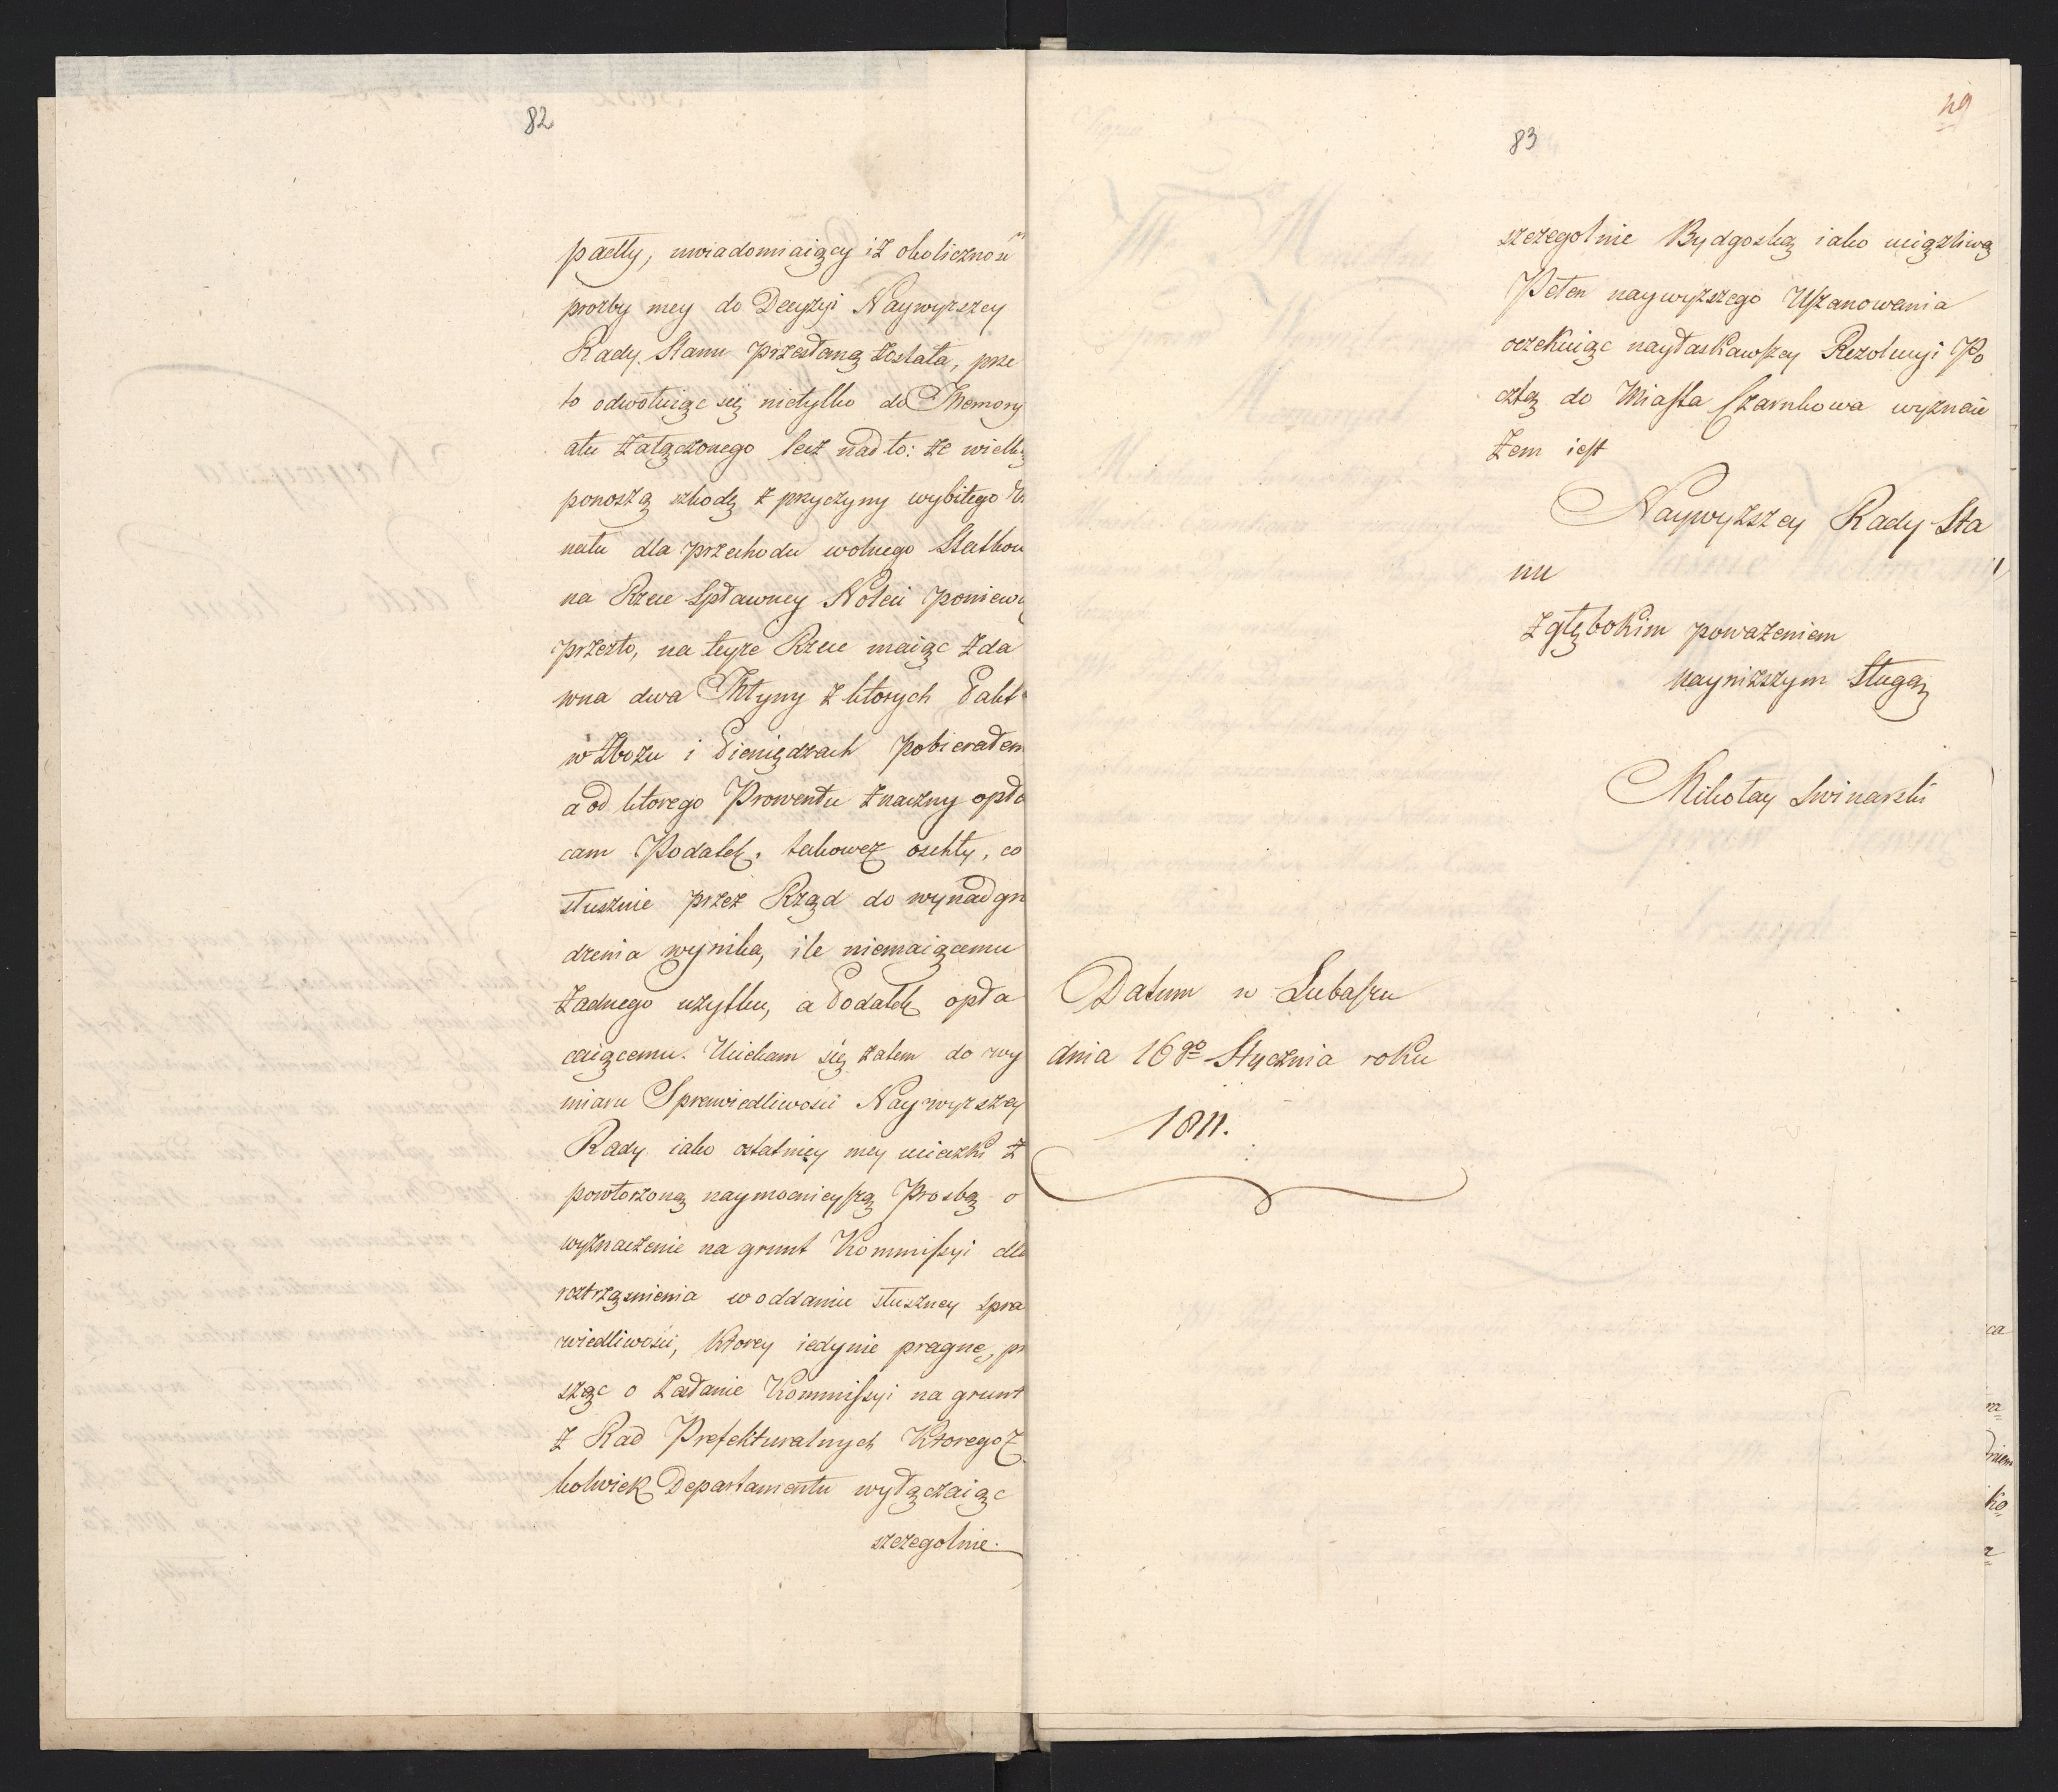 82
padły, uwiadomiaiący iż okolicznośi
prozby mey do Decyzyi Naywyzszey
Rady Stanu przesłaną została, prze
to odwołuiąc się nietylko do Memory
ału załączonego lecz nad to: że wielką
ponoszą szkodę z przyczyny wybitego
nału dla przechodu wolnego Statkow
na Rzece Spławney Noteci poniewa
przezto, na teyże Rzece maiąc z da
wna dwa Młyny z ktorych
w Zbożu i Pieniędzach pobierałem
a od ktorego Prowentu znaczny opła
cam Podatek, takowez oschły, co
słusznie przez Rząd do wynadgro
dzenia wynika, ile niemaiącemu
żadnego użytku, a Podatek opła
caiącemu. Uciekam się zatem do wy
miaru Sprawiedliwości Naywyzszey
Rady iako ostatniey mey ucieczki z
powtorzoną naymocnieyszą Prosbą o
wyznaczenie na grunt Kommissyi dla
roztrząsnienia w oddaniu słuszney spra
wiedliwości, ktorey iedynie pragnę, pr
sząc o zadanie Kommissyi na grunt
z Rad Prefekturalnych ktoregoż
kolwiek Departamentu wyłączaiąc
szczegolnie.
49
83
szczegolnie Bydgoską iako uciążliwą
Pełen naywyższego Uszanowania
oczekuiąc nayłaskawszey Rezolucyi Po
cztą do Miasta Czarnkowa wyznaię
żem iest
Naywyższey Rady Sta
nu
z głębokim poważeniem
nayniższym Sługą
Mikołay Swinarski
Datum w Lubaszu
dnia 16go Stycznia roku
1811.